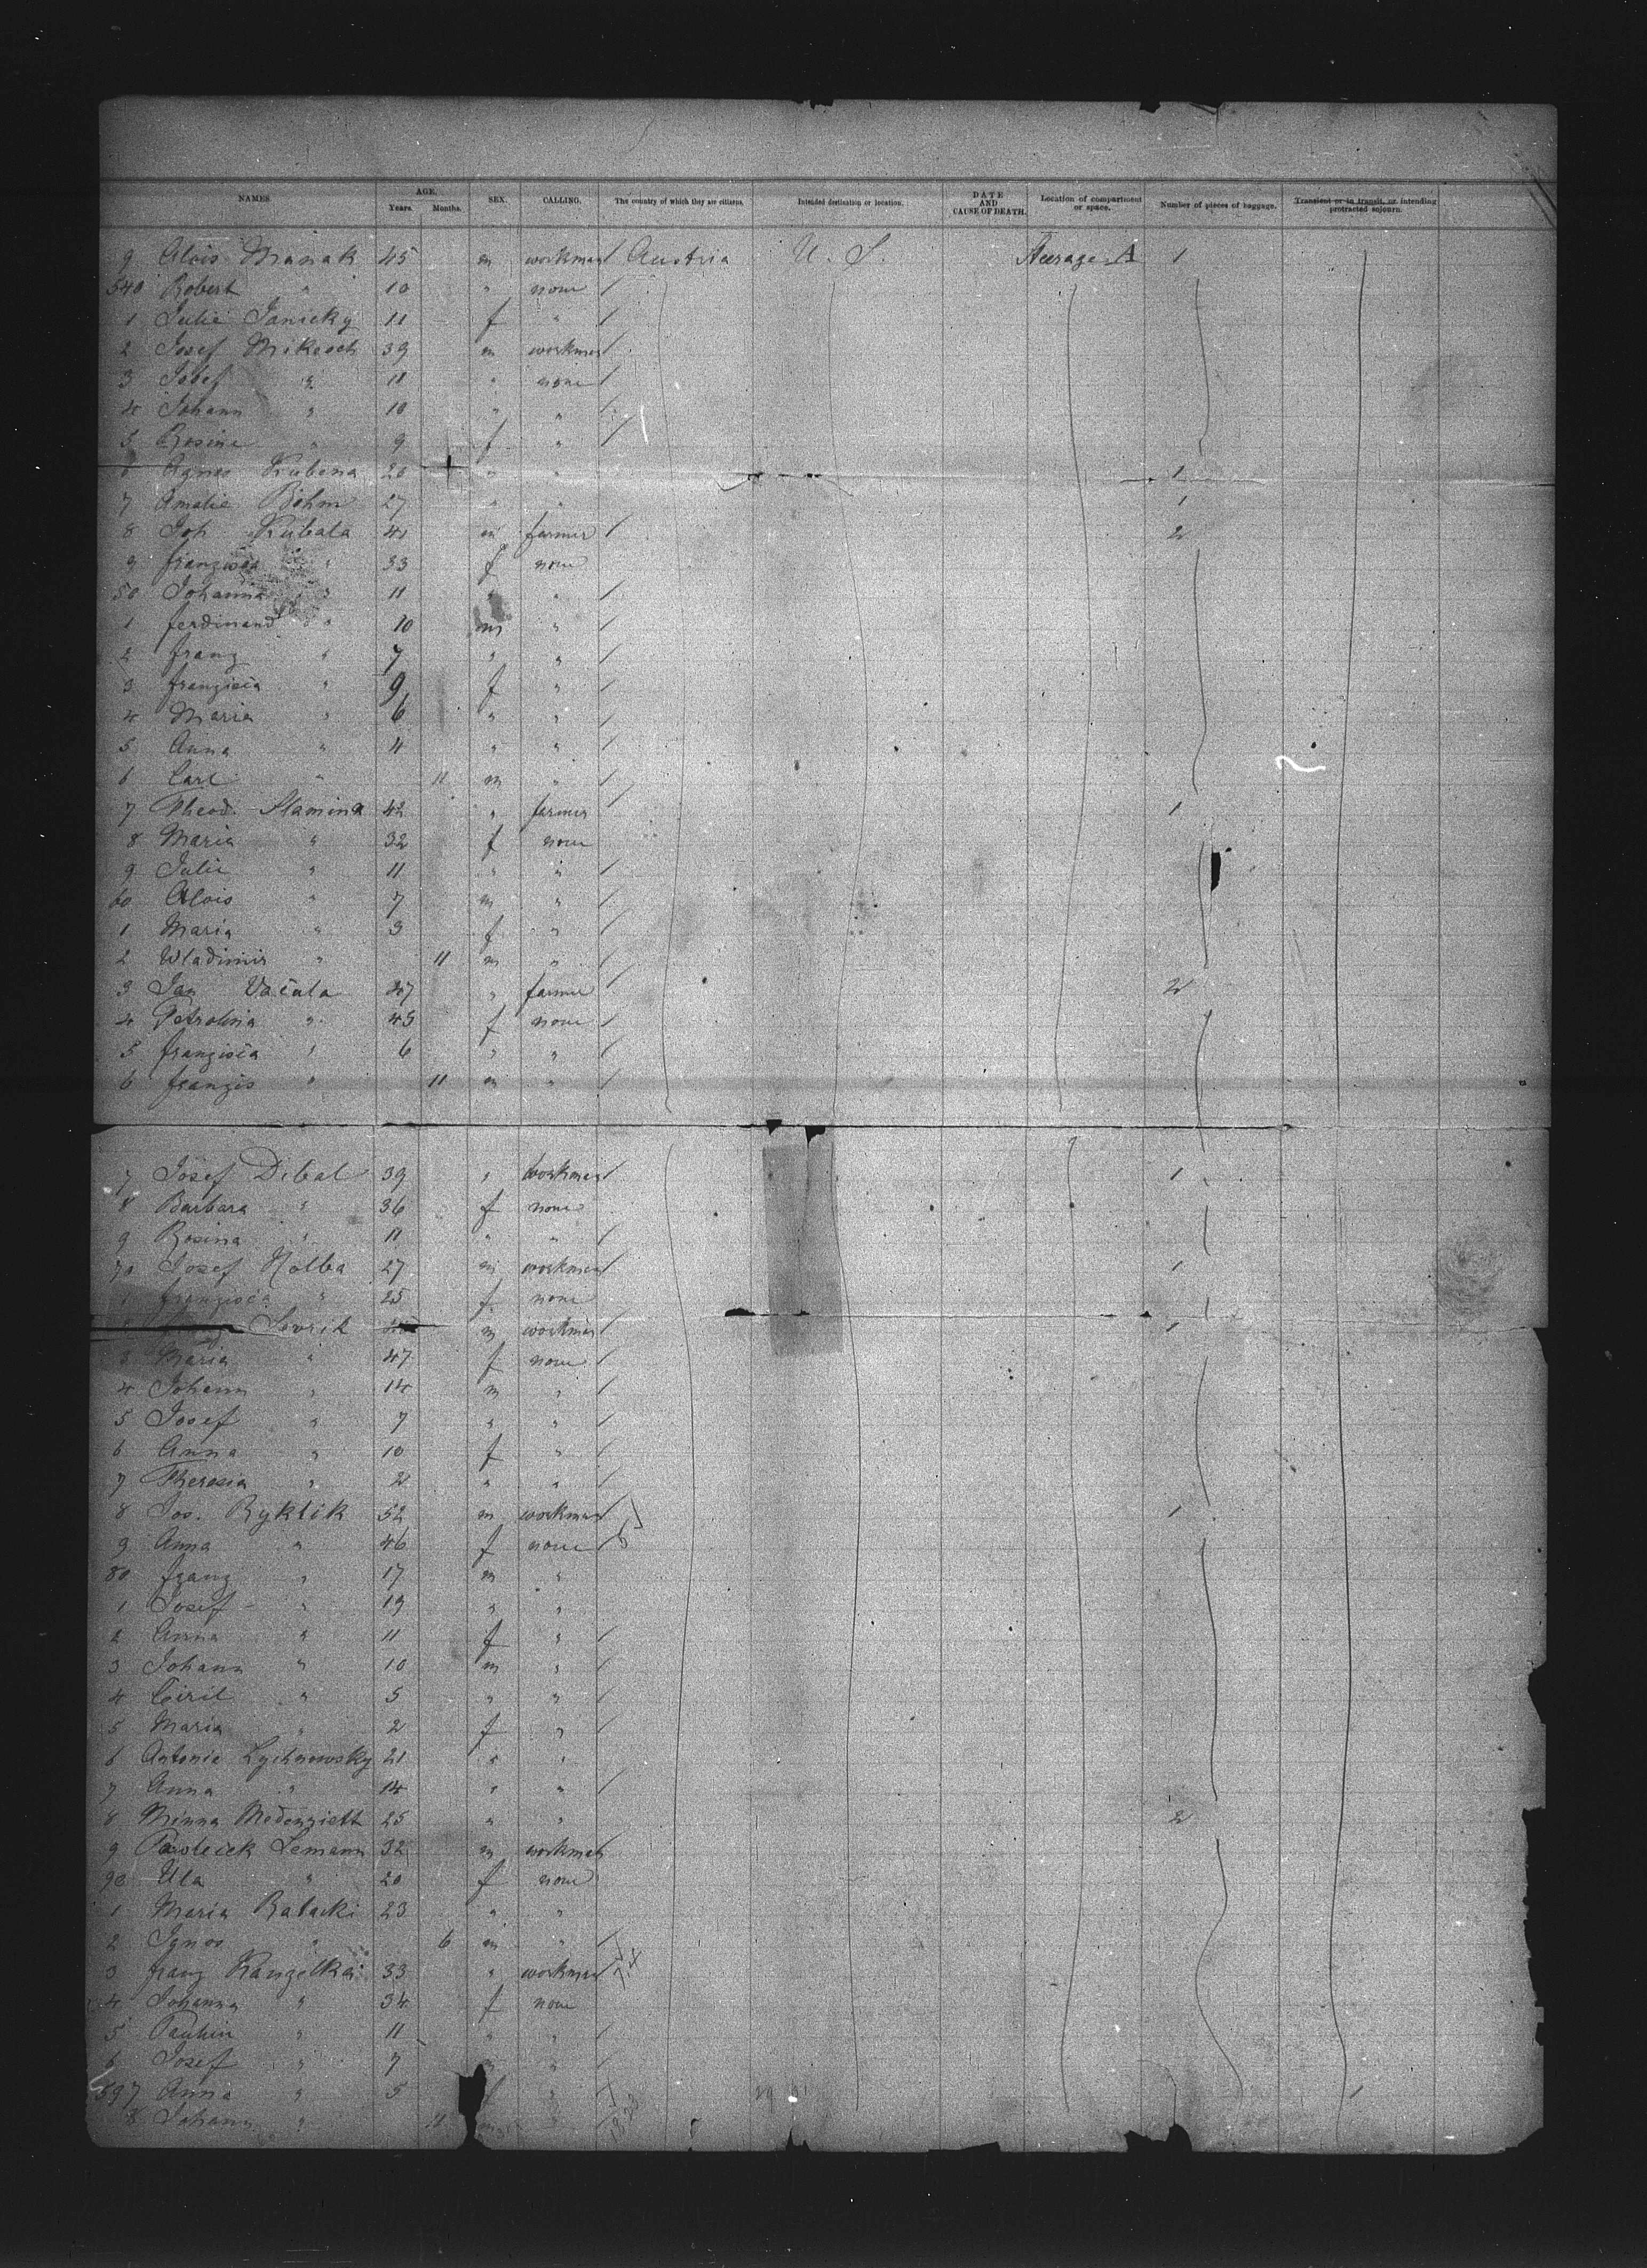 NAMES. AGE. SEX. CALLING. The country of which they are citizens. Intended destination or location. DATE AND CAUSE OF DEATH. Location of compartment or space. Number of pieces of baggage. Transient or in transit, or intending protracted sojourn.
Years. Months.
9 Alois Manak 45 m workman / Austria U. S. Steerage A 1
540 Robert " 10 " none /
1 Julie Janicky 11 f " /
2 Josef Mikesch 39 m workman /
3 Josef " 11 " none /
4 Johann " 10 " " /
5 Rosine " 9 f " /
6 Agnes Kubena 26 " " 1
7 Amalie Böhm 27 " " 1
8 Joh Kubala 41 m farmer / 2
9 franzisca " 33 f none
50 Johanna " 11 " " /
1 ferdinand " 10 m " /
2 franz " 7 " " /
3 franzisca " 9 f " /
4 Maria " 6 " " /
5 Anna " 4 " " /
6 Carl " 11 m " /
7 Theod. Slamina 42 " farmer 1
8 Maria " 32 f none
9 Julie " 11 " " /
60 Alois " 7 m " /
1 Maria " 3 f " /
2 Wladimir " 11 m " /
3 Jan Vacula 47 " farmer / 2
4 Petrolina " 45 f none /
5 franzisca " 6 " " /
6 franzis " 11 m " /
7 Josef Dibal 39 " workman / 1
8 Barbara " 36 f none
9 Rosina " 11 " " /
70 Josef Holba 27 m workman / 1
1 franzisca " 25 f none
m workman / 1
3 Maria " 47 f none /
4 Johann " 14 m " /
5 Josef " 7 " " /
6 Anna " 10 f " /
7 Theresia " 2 " " /
8 Jos. Ryklik 52 m workman / 1
9 Anna " 46 f none /
80 franz " 17 m "
1 Josef " 19 " "
2 Anna " 11 f " /
3 Johann " 10 m " /
4 Ciril " 5 " " /
5 Maria " 2 f " /
6 Antonie Lychnowsky 21 " "
7 Anna " 14 " " /
8 Minna 25 " " 2
9 Lemann 32 m workman
90 Ula " 20 f none
1 Maria Ratacki 23 " "
2 Ignas " 6 m " /
3 franz Kanzelka 33 " workman /
4 Johanna " 34 f none
5 Paulin " 11 " " /
6 Josef " 7 m " /
597 Anna " 5 f " / 1
8 Johann " 11 m " /